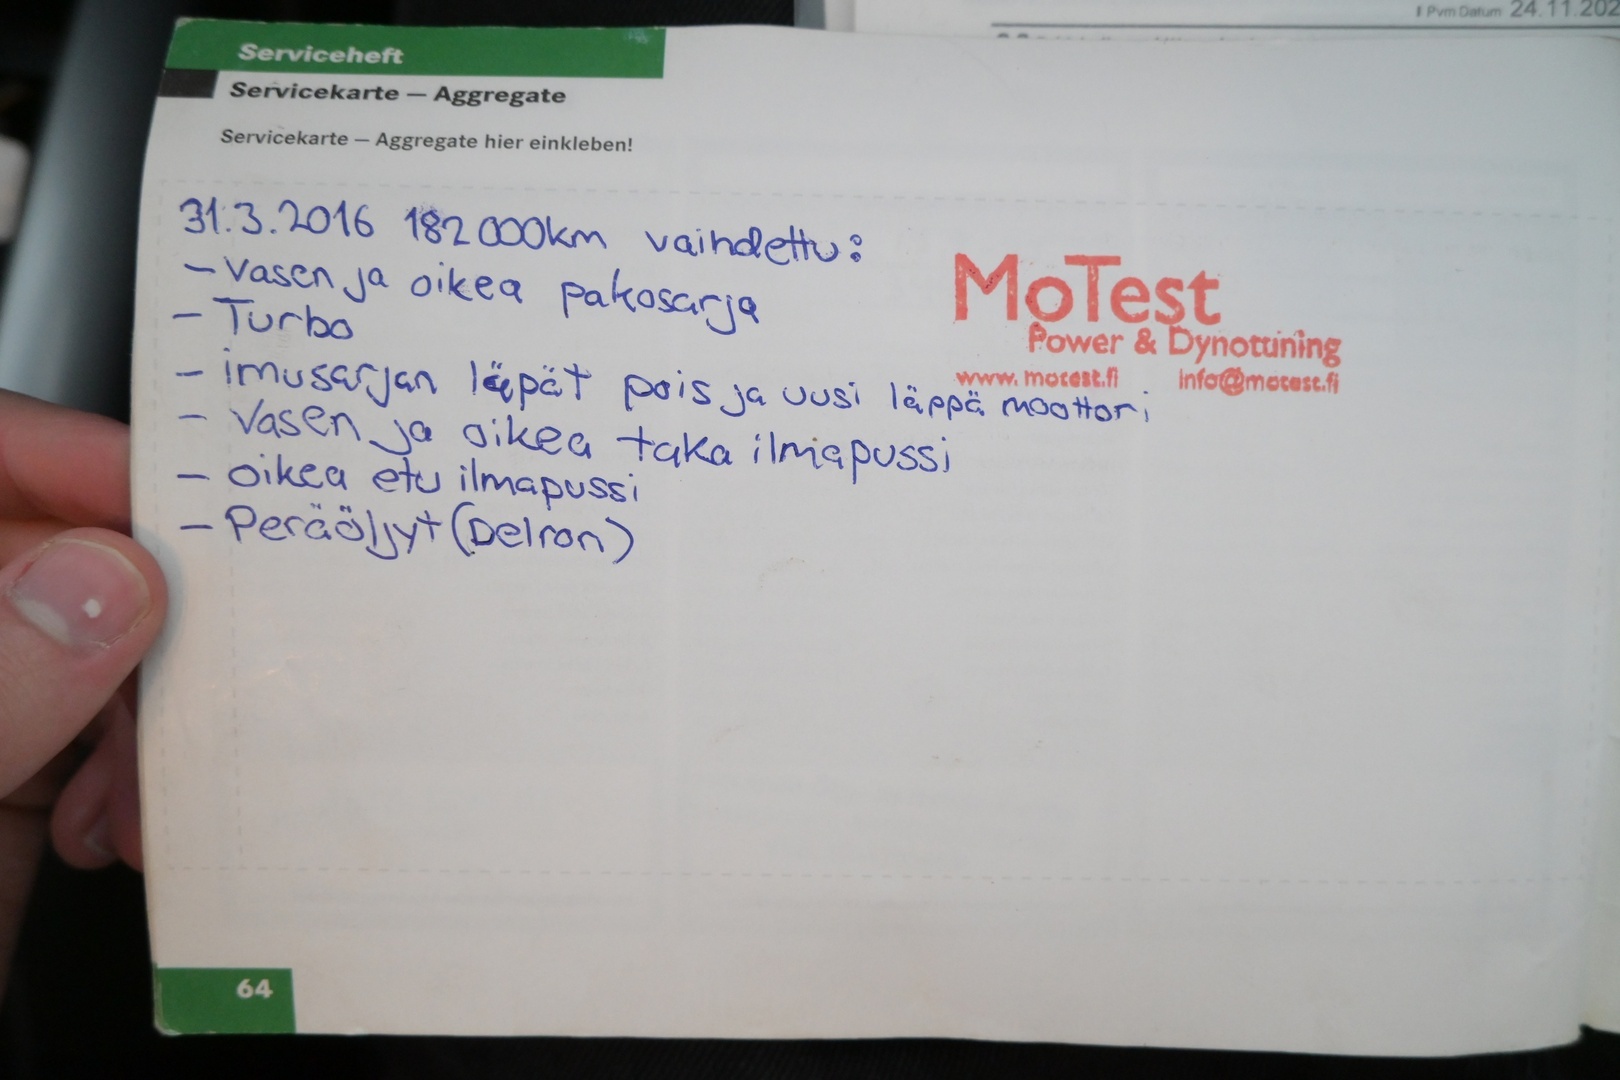 Pvm Datum 24.11.202
Serviceheft
Servicekarte — Aggregate
Servicekarte — Aggregate hier einkleben!
31.3.2016 182 000km vaihdettu:
- Vasen ja oikea pakosarja
- Turbo
- imusarjan läpät pois ja uusi läppä moottori
- Vasen ja oikea taka ilmapussi
- oikea etu ilmapussi
- Peräöljyt (Delron)
MoTest
Power & Dynotuning
www.motest.fi info@motest.fi
64